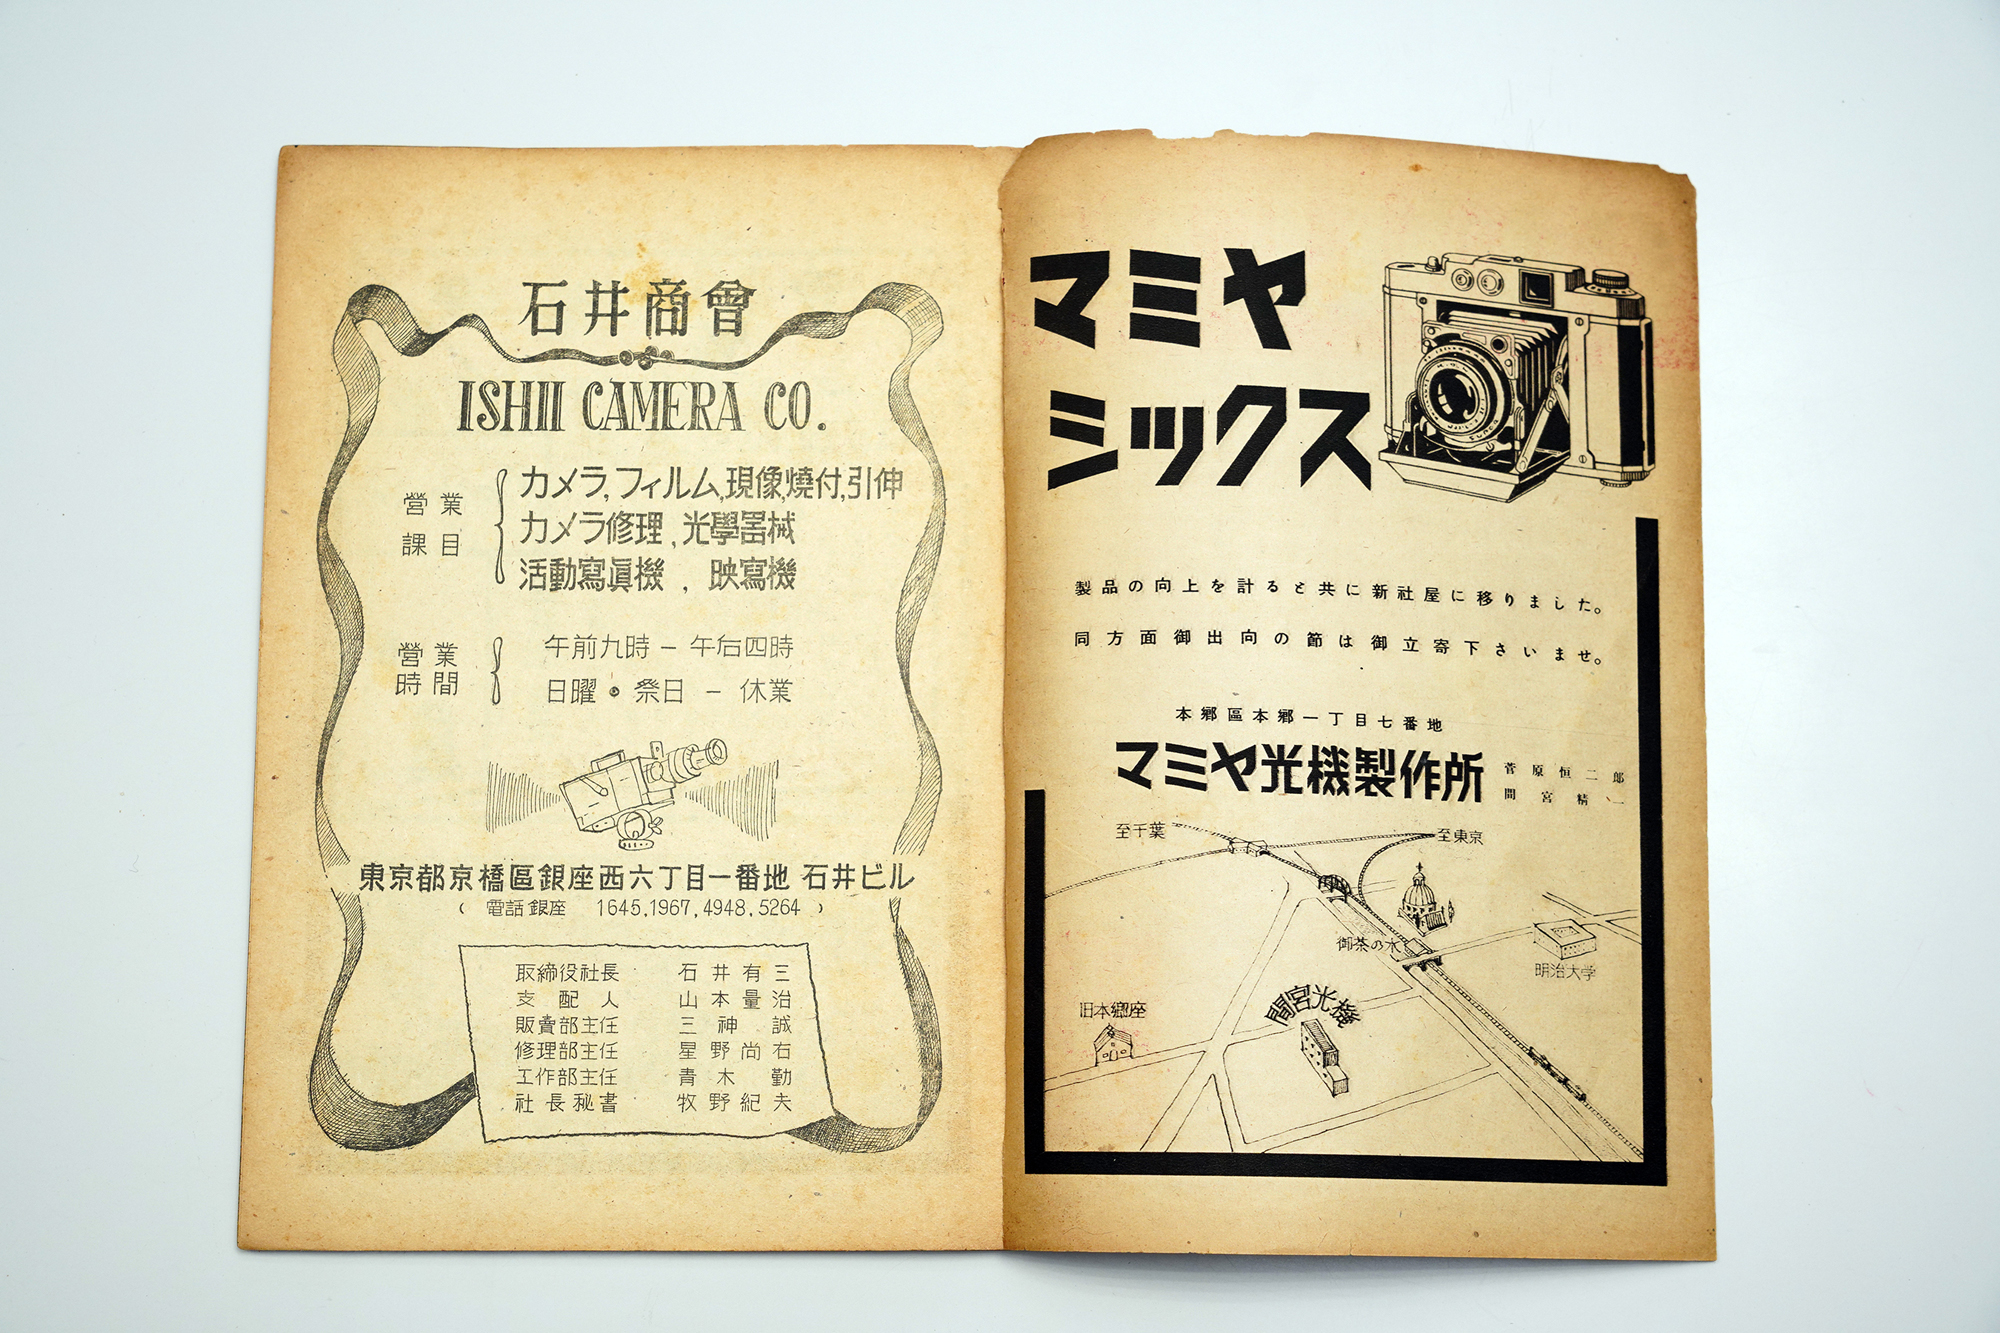 石井商會
ISHII CAMERA CO.
営業課目
カメラ,フィルム,現像,燒付,引伸
カメラ修理,光學器械
活動寫眞機,映寫機
営業時間
午前九時ー午后四時
日曜・祭日ー休業
東京都京橋區銀座西六丁目一番地 石井ビル
(電話銀座 1645,1967,4948,5264)
取締役社長 石井有三
支配人 山本量治
販賣部主任 三神誠
修理部主任 星野尚右
工作部主任 青木勤
社長秘書 牧野紀夫
マミヤ
シックス
製品の向上を計ると共に新社屋に移りました。
同方面御出向の節は御立寄下さいませ。
本郷區本郷一丁目七番地
マミヤ光機製作所
菅原恒二郎
間宮精一
至千葉
至東京
御茶の水
明治大学
旧本郷座
間宮光機